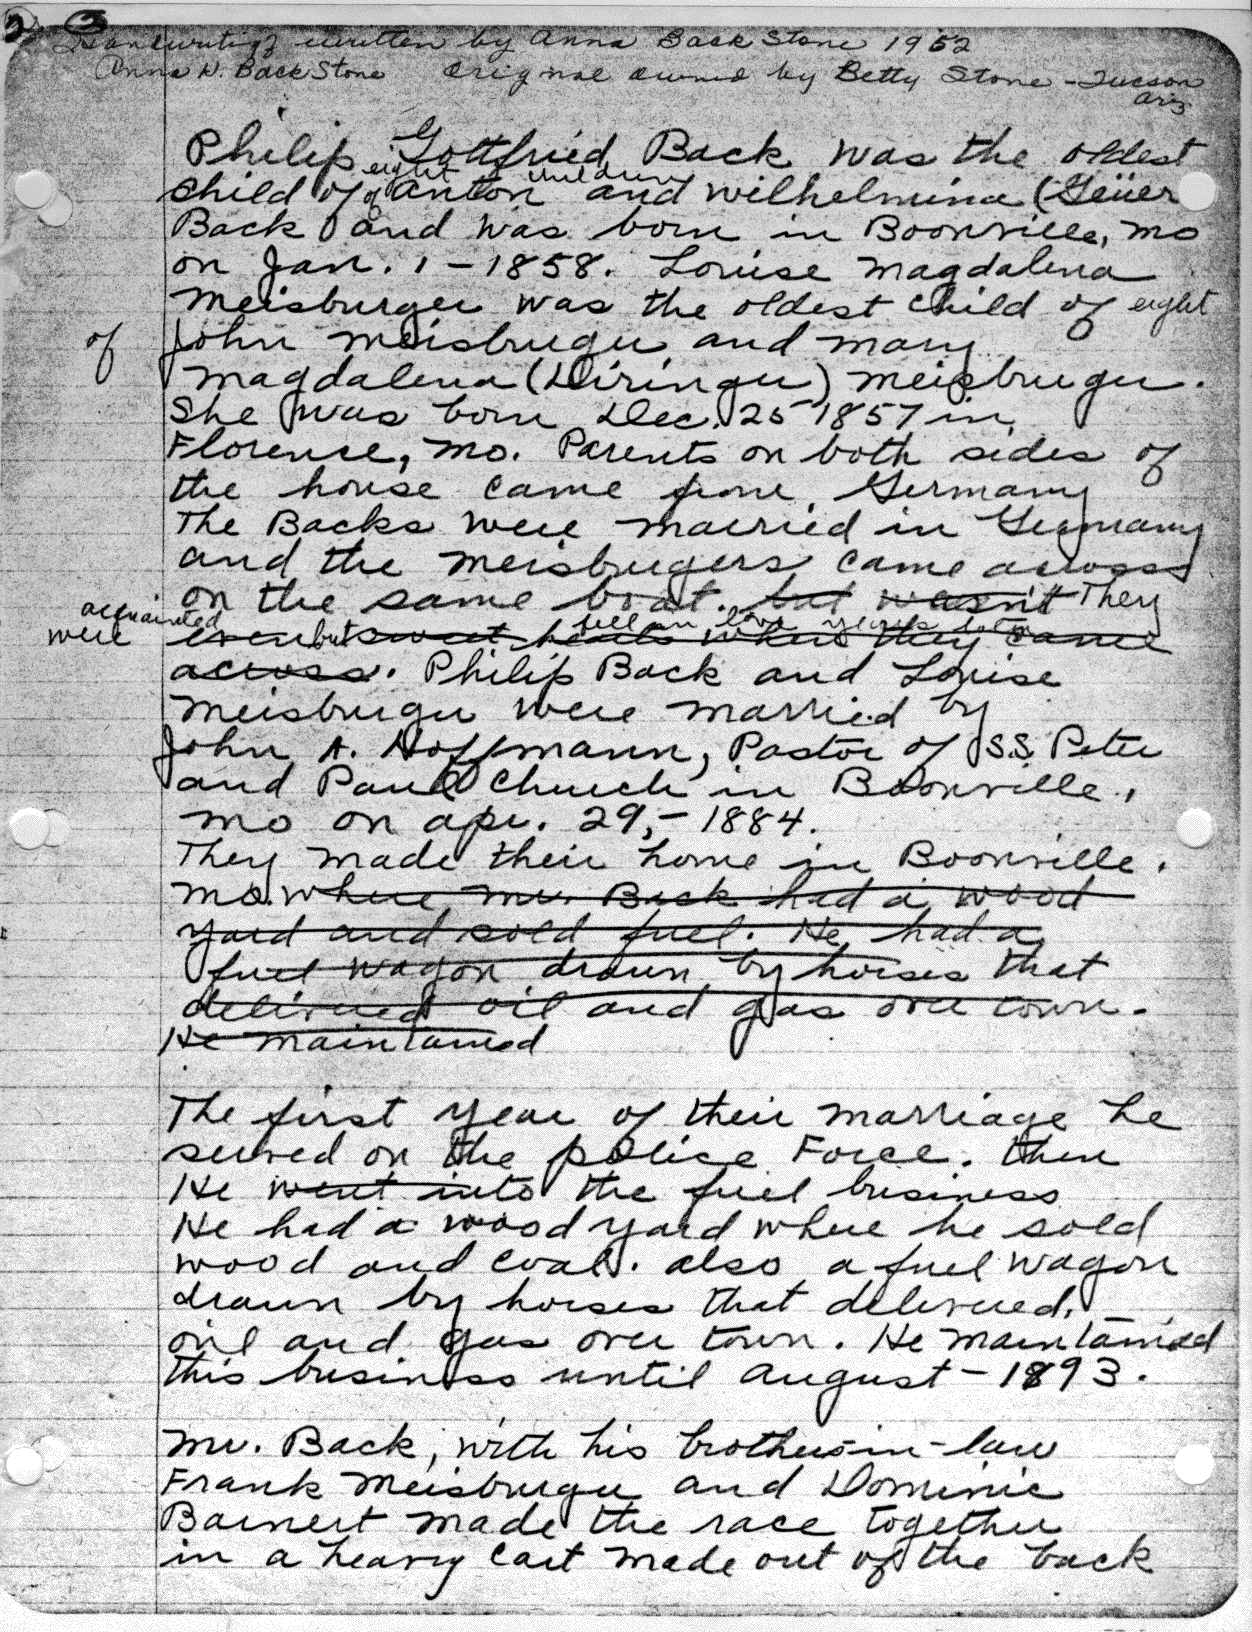 2
Handwriting written by Anna Back Stone 1952
Anna W. Back Stone Original owned by Betty Stone - Tucson
Ariz
Philip Gottfried Back was the oldest
eight children
child of of Anton and Wilhelmina (Geüer
Back and was born in Boonville, Mo
on Jan. 1 - 1858. Louise Magdalena
Meisburger was the oldest child of eight
of John Meisburger and Mary
Magdalena (Diringer) Meisburger.
She was born Dec. 25 1857 in
Florence, Mo. Parents on both sides of
the house came from Germany
The Backs were married in Germany
and the Meisburgers came across
on the same boat. but wasn't They
acquainted fell in love years later
were even but sweet hearts when they came
across. Philip Back and Louise
Meisburger were married by
John A. Hoffmann, Pastor of S.S. Peter
and Paul Church in Boonville,
Mo on Apr. 29, - 1884.
They made their home in Boonville,
Mo. where Mr. Back had a wood
yard and sold fuel. He had a
fuel wagon drawn by horses that
delivered oil and gas over town.
He maintained
The first year of their marriage he
served on the police Force. then
He went into the fuel business
He had a wood yard where he sold
wood and coal. also a fuel wagon
drawn by horses that delivered
oil and gas over town. He maintained
this business until August - 1893.
Mr. Back, with his brothers-in-law
Frank Meisburger and Dominic
Barnert made the race together
in a heavy cart made out of the back